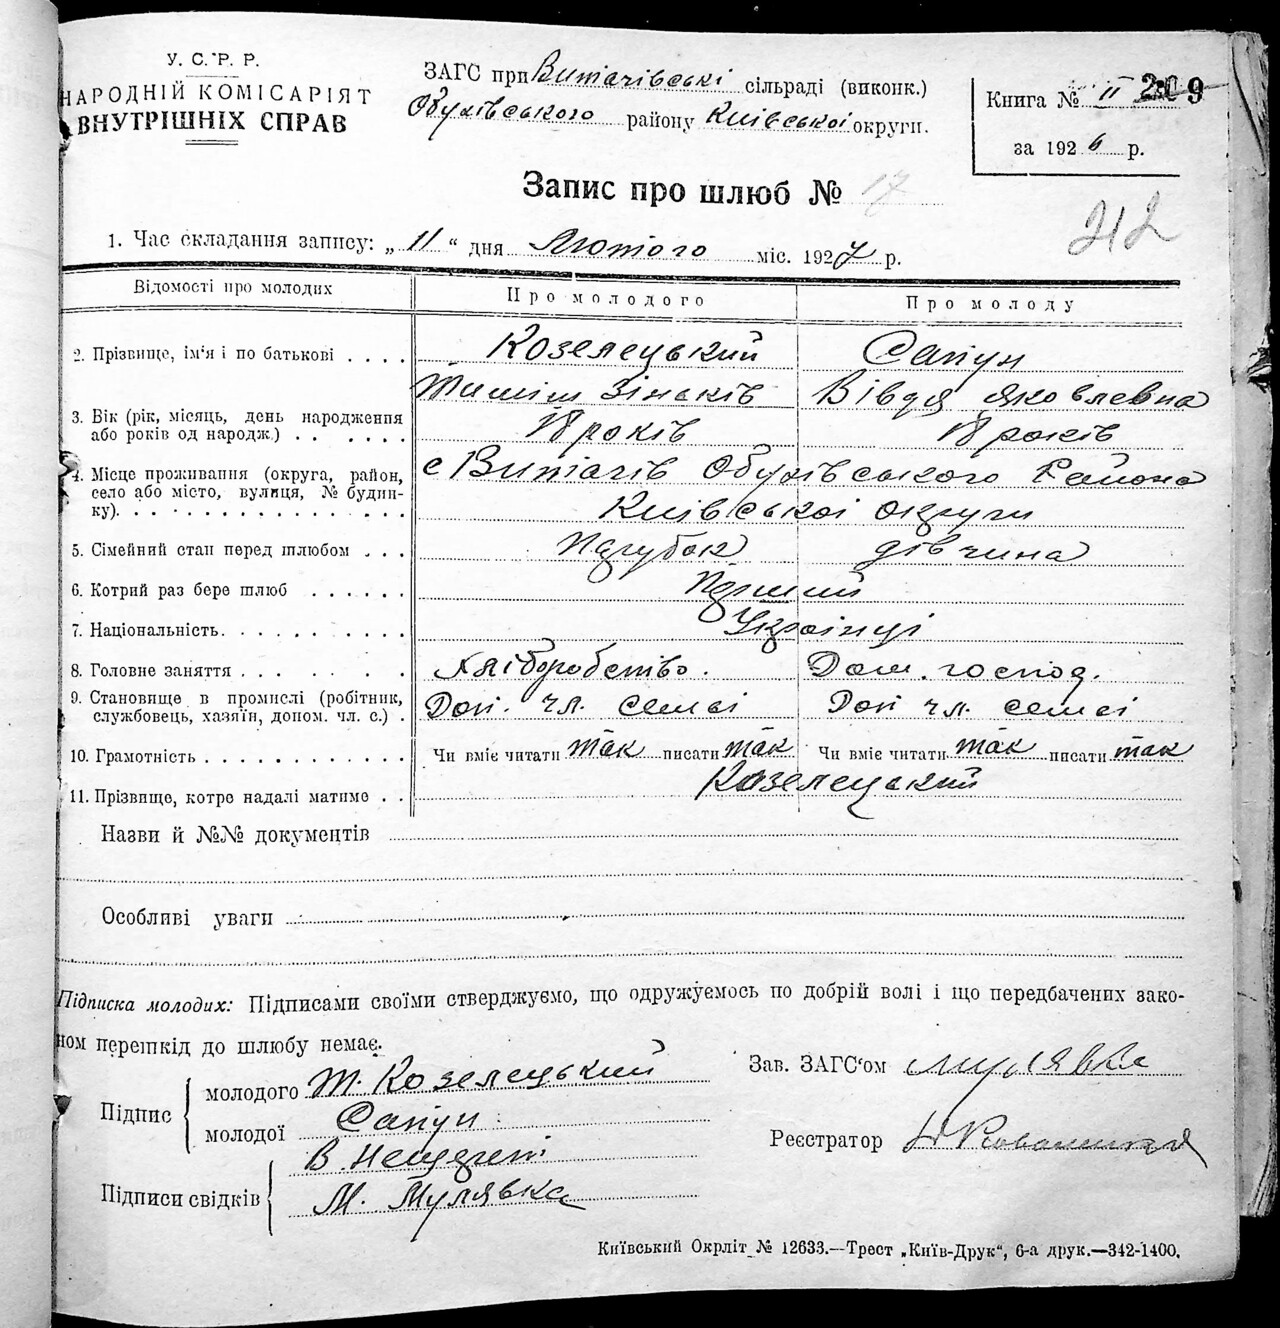 У. С. Р. Р.
НАРОДНІЙ КОМІСАРІЯТ
ВНУТРІШНІХ СПРАВ
ЗАГС при Витачівські сільраді (виконк.)
Обухівського району Київської округи.
Книга № II 9
за 1926 р.
Запис про шлюб № 17
212
1. Час складання запису: „11“ дня Лютого міс. 1927 р.
Відомості про молодих Про молодого Про молоду
2. Прізвище, ім'я і по батькові . . . . Козелецький Сапун
Тиміш Зіньків Вівдя Яковлевна
3. Вік (рік, місяць, день народження
або років од народж.) . . . . . . 18 років 18 років
4. Місце проживання (округа, район, с Витачів Обухівського Района
село або місто, вулиця, № будин-
ку). . . . . . . . . . . . . . . . Київської округи
5. Сімейний стан перед шлюбом . . . Парубок дівчина
6. Котрий раз бере шлюб . . . . . . Перший
7. Національність. . . . . . . . . . . Українці
8. Головне заняття . . . . . . . . . Хліборобство. Дом. господ.
9. Становище в промислі (робітник,
службовець, хазяїн, допом. чл. с.) . Доп. чл. семьї Доп чл. семьї
10. Грамотність . . . . . . . . . . . . Чи вміє читати так писати так Чи вміє читати так писати так
11. Прізвище, котре надалі матиме . . Козелецький
Назви й №№ документів
Особливі уваги
Підписка молодих: Підписами своїми стверджуємо, що одружуємось по добрій волі і що передбачених зако-
ном перешкід до шлюбу немає.
Підпис
молодого Т. Козелецький
молодої Сапун
Зав. ЗАГС'ом Мулявка
Реєстратор
Підписи свідків В.
М. Мулявка
Київський Окрліт № 12633.—Трест „Київ-Друк“, 6-а друк.—342-1400.